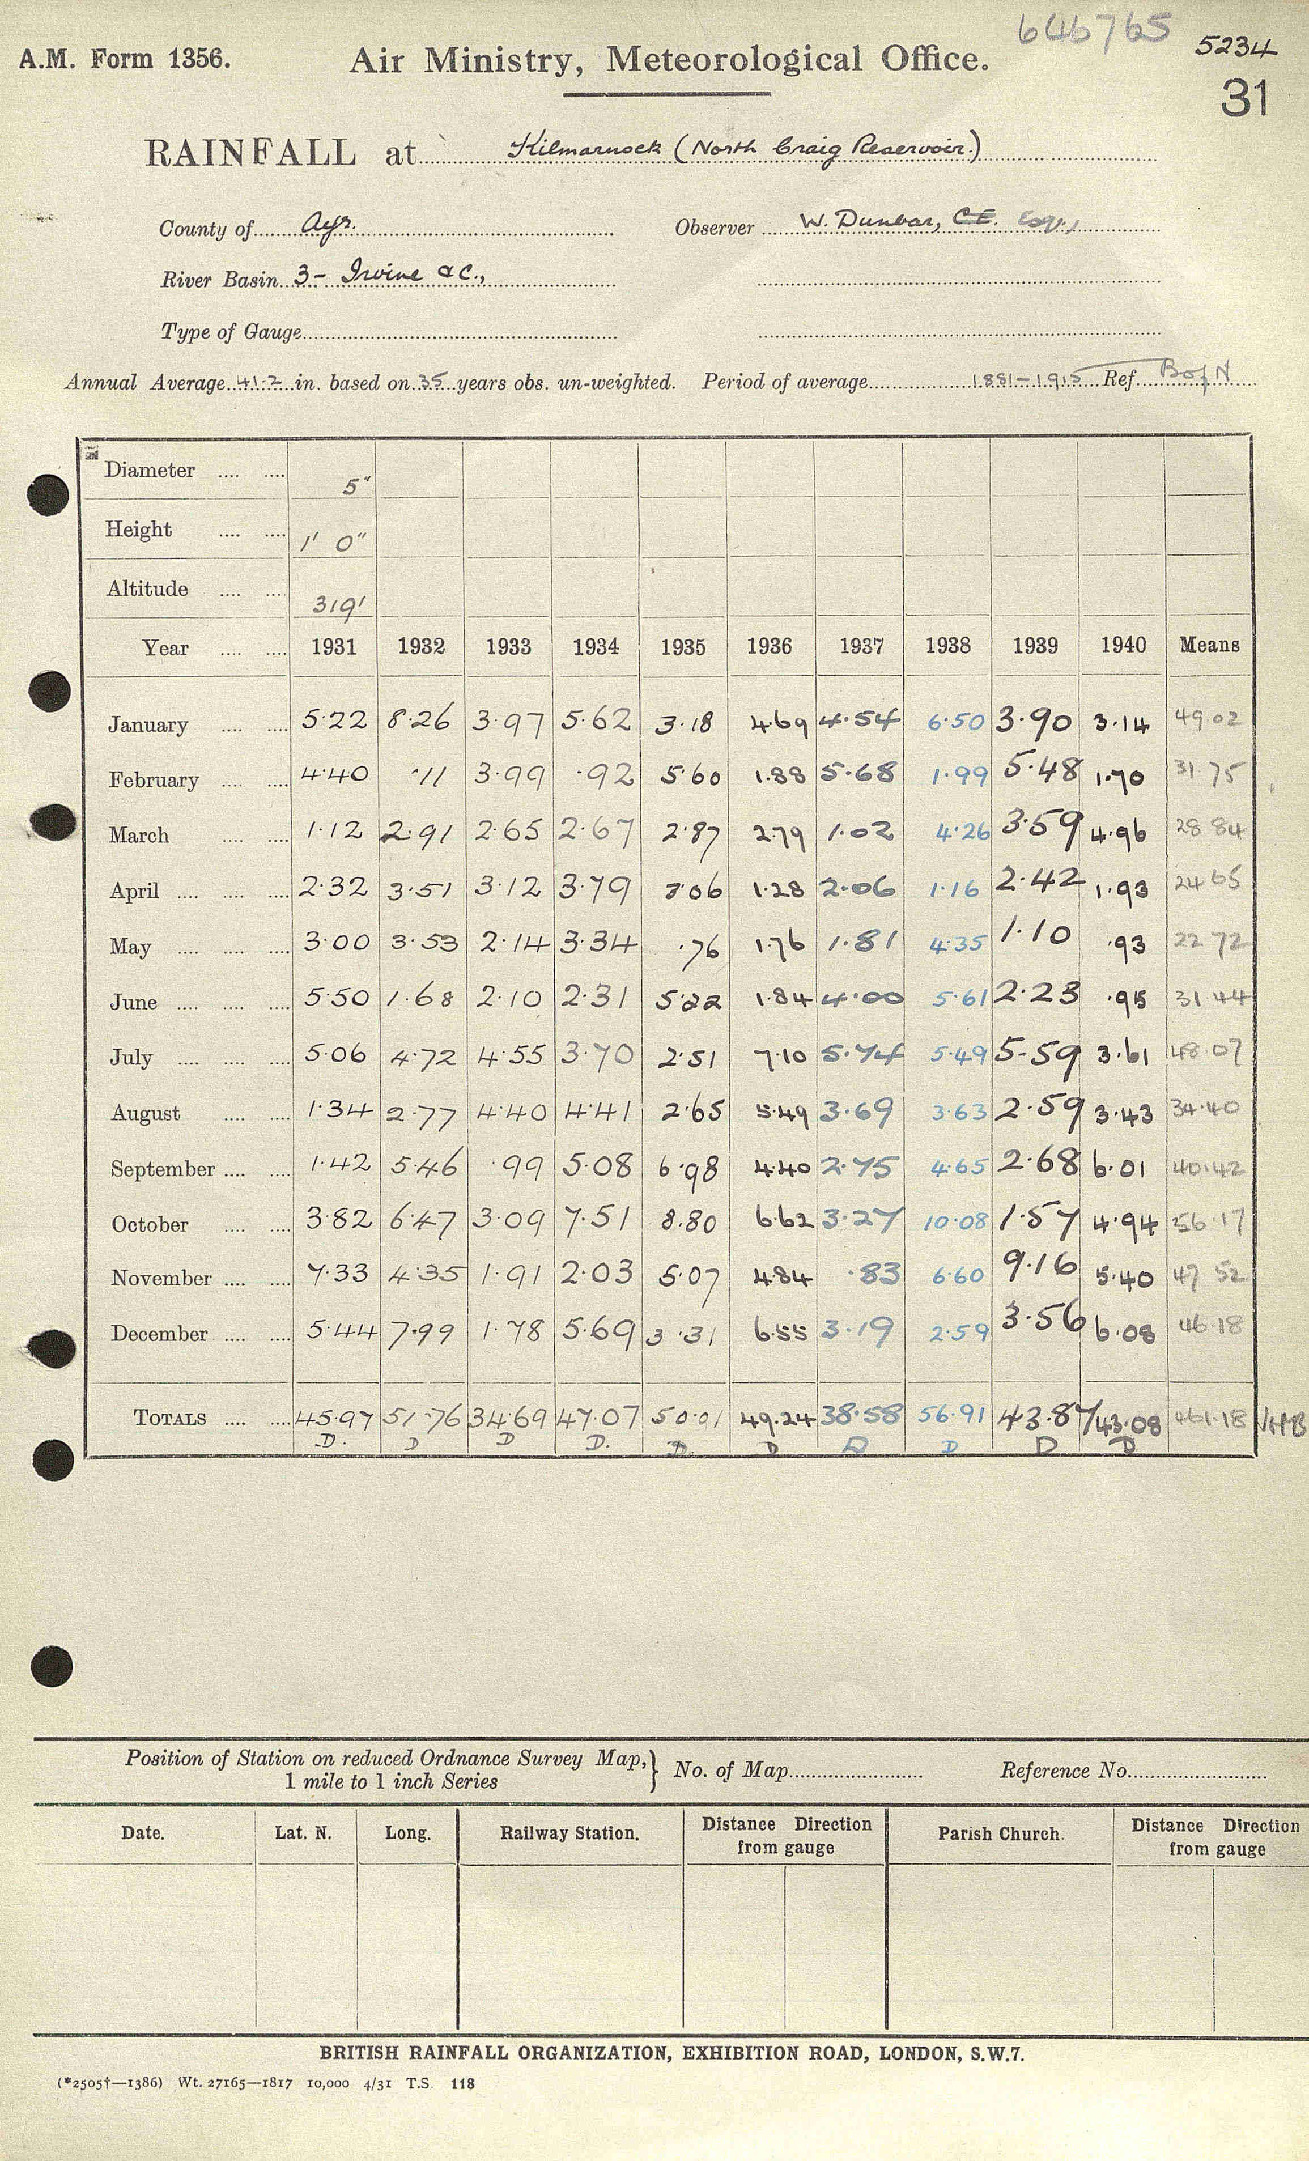 646765
5234
A.M. Form 1356. Air Ministry, Meteorological Office.
31
RAINFALL at Kilmarnock (North Craig Reservoir.)
County of Ayr. Observer W. Dunbar, C.E. Esq.,
River Basin 3- Irvine &c.,
Type of Gauge
Annual Average 41.2 in. based on 35 years obs. un-weighted. Period of average 1881-1915 Ref. B of N
Diameter 5"
Height 1' 0"
Altitude 319'
Year 1931 1932 1933 1934 1935 1936 1937 1938 1939 1940 Means
January 5.22 8.26 3.97 5.62 3.18 4.69 4.54 6.50 3.90 3.14 49.02
February 4.40 .11 3.99 .92 5.60 1.88 5.68 1.99 5.48 1.70 31.75
March 1.12 2.91 2.65 2.67 2.87 2.79 1.02 4.26 3.59 4.96 28.84
April 2.32 3.51 3.12 3.79 3.06 1.28 2.06 1.16 2.42 1.93 24.65
May 3.00 3.53 2.14 3.34 .76 1.76 1.81 4.35 1.10 .93 22.72
June 5.50 1.68 2.10 2.31 5.22 1.84 4.00 5.61 2.23 .95 31.44
July 5.06 4.72 4.55 3.70 2.51 7.10 5.74 5.49 5.59 3.61 48.07
August 1.34 2.77 4.40 4.41 2.65 5.49 3.69 3.63 2.59 3.43 34.40
September 1.42 5.46 .99 5.08 6.98 4.40 2.75 4.65 2.68 6.01 40.42
October 3.82 6.47 3.09 7.51 8.80 6.62 3.27 10.08 1.57 4.94 56.17
November 7.33 4.35 1.91 2.03 5.07 4.84 .83 6.60 9.16 5.40 47.52
December 5.44 7.99 1.78 5.69 3.31 6.55 3.19 2.59 3.56 6.08 46.18
TOTALS 45.97 51.76 34.69 47.07 50.01 49.24 38.58 56.91 43.87 43.08 461.18
D. D D D. D. D D D D D
Position of Station on reduced Ordnance Survey Map, } No. of Map Reference No.
1 mile to 1 inch Series
Date. Lat. N. Long. Railway Station. Distance Direction from gauge Parish Church. Distance Direction from gauge
BRITISH RAINFALL ORGANIZATION, EXHIBITION ROAD, LONDON, S.W.7.
(*2505†—1386) Wt. 27165—1817 10,000 4/31 T.S. 118